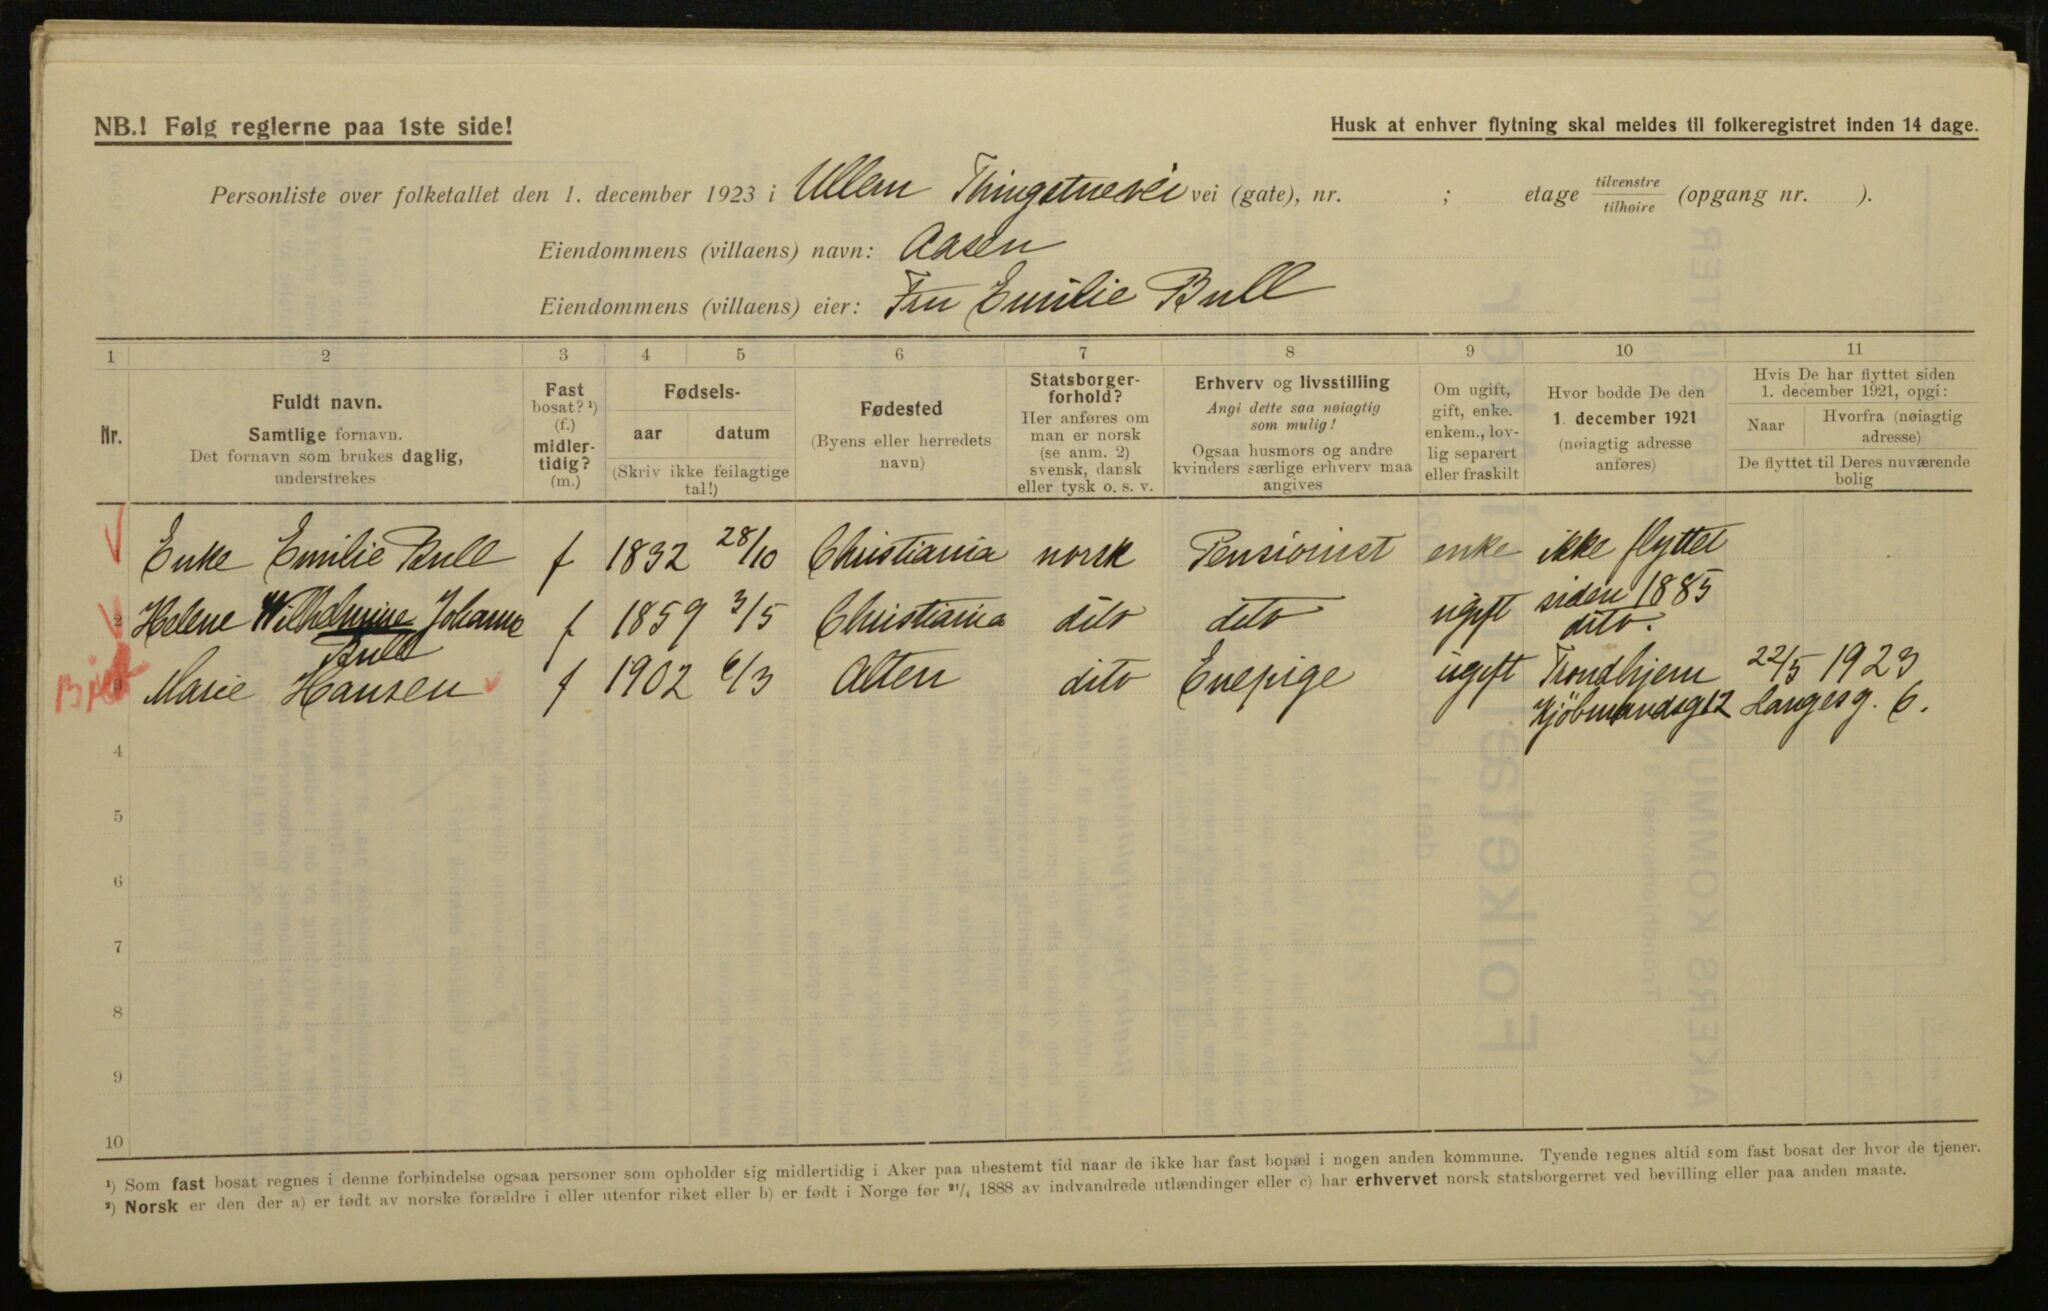 NB.! Følg reglerne paa 1ste side!
Husk at enhver flytning skal meldes til folkeregistret inden 14 dage.
Personliste over folketallet den 1. december 1923 i Ullern Thingstuevei vei (gate), nr. ; etage tilvenstre/tilhøire (opgang nr. ).
Eiendommens (villaens) navn: Aasen
Eiendommens (villaens) eier: Fru Emilie Bull
1 2 3 4 5 6 7 8 9 10 11
Nr.
Fuldt navn.
Samtlige fornavn.
Det fornavn som brukes daglig,
understrekes
Fast
bosat? ¹)
(f.)
midler-
tidig?
(m.)
Fødsels-
aar datum
(Skriv ikke feilagtige
tal!)
Fødested
(Byens eller herredets
navn)
Statsborger-
forhold?
Her anføres om
man er norsk
(se anm. 2)
svensk, dansk
eller tysk o. s. v.
Erhverv og livsstilling
Angi dette saa nøiagtig
som mulig!
Ogsaa husmors og andre
kvinders særlige erhverv maa
angives
Om ugift,
gift, enke.
enkem., lov-
lig separert
eller fraskilt
Hvor bodde De den
1. december 1921
(nøiagtig adresse
anføres)
Hvis De har flyttet siden
1. december 1921, opgi:
Naar
Hvorfra (nøiagtig
adresse)
De flyttet til Deres nuværende
bolig
Enke Emilie Bull f 1832 28/10 Christiania norsk Pensionist enke ikke flyttet
siden 1885
2 Helene Wilhelmine Johanne f 1859 3/5 Christiania dito dito ugift dito.
Bull
3 Marie Hansen f 1902 6/3 Alten dito Enepige ugift Trondhjem 22/5 1923
Kjöbmandsg 12 Langesg. 6.
4
5
6
7
8
9
10
¹) Som fast bosat regnes i denne forbindelse ogsaa personer som opholder sig midlertidig i Aker paa ubestemt tid naar de ikke har fast bopæl i nogen anden kommune. Tyende regnes altid som fast bosat der hvor de tjener.
²) Norsk er den der a) er født av norske forældre i eller utenfor riket eller b) er født i Norge før ²¹/₄ 1888 av indvandrede utlændinger eller c) har erhvervet norsk statsborgerret ved bevilling eller paa anden maate.